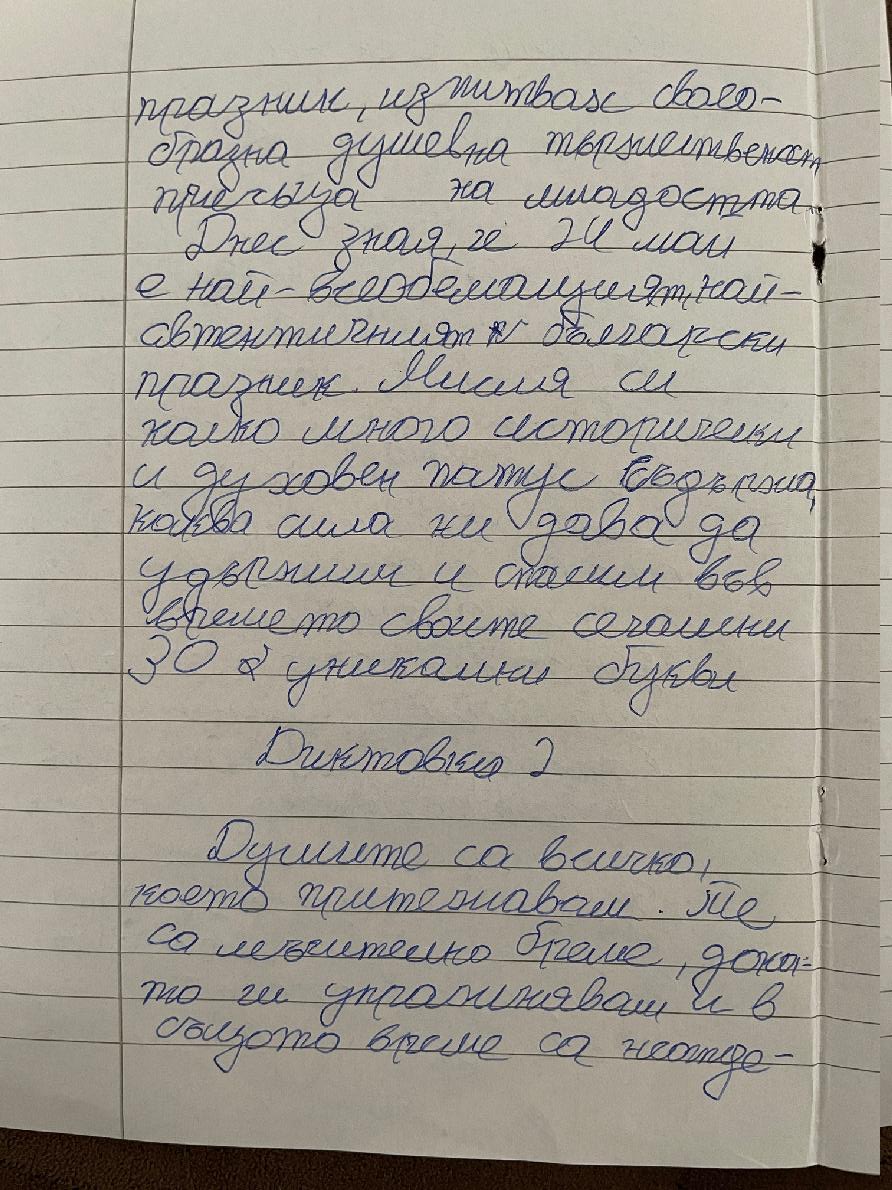 празник, изпитвах свого-
бразна душевна тържественост
присъща на младостта.
Днес зная, че 24 май
е най-всеобемащият, най-
автентичният български
празник. Мисля си
колко много исторически
и духовен патус съдържа,
каква сила ни дава да
удържим и спасим във
времето своите сегашни
30 уникални букви
Диктовка 2
Думите са всичко,
което притежавам. Те
са мъчително бреме, дока-
то ги упражнявам и в
същото време са неотде-